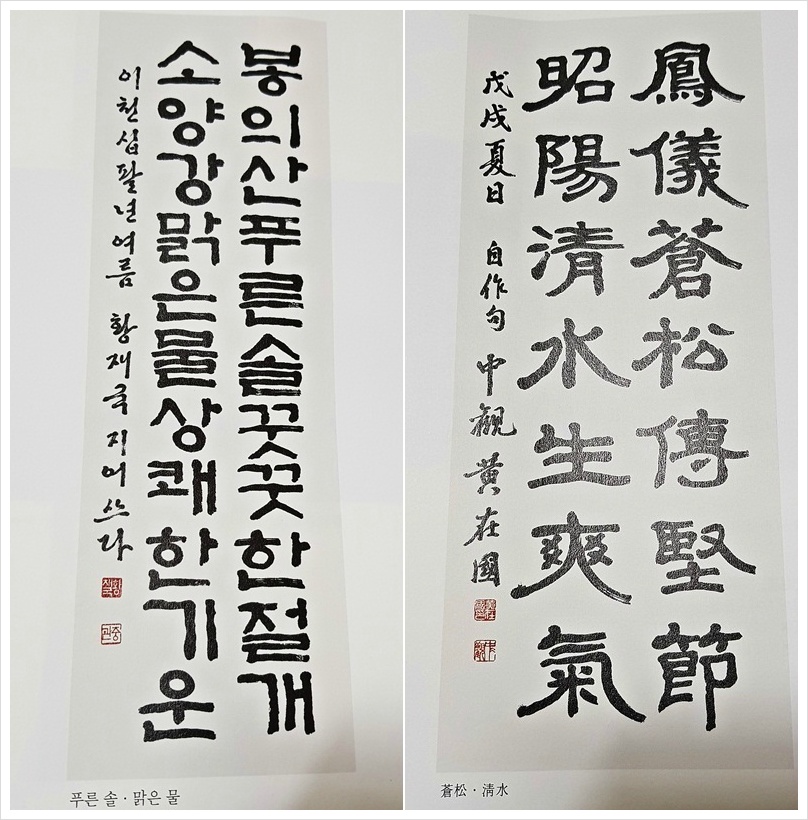 봉의산푸른솔꿋꿋한절개
소양강맑은물상쾌한기운
이천십팔년여름 황재국 지어쓰다
푸른 솔 · 맑은 물
鳳儀蒼松傳堅節
昭陽清水生爽氣
戊戌夏日 自作句 中觀 黃在國
蒼松 · 淸水